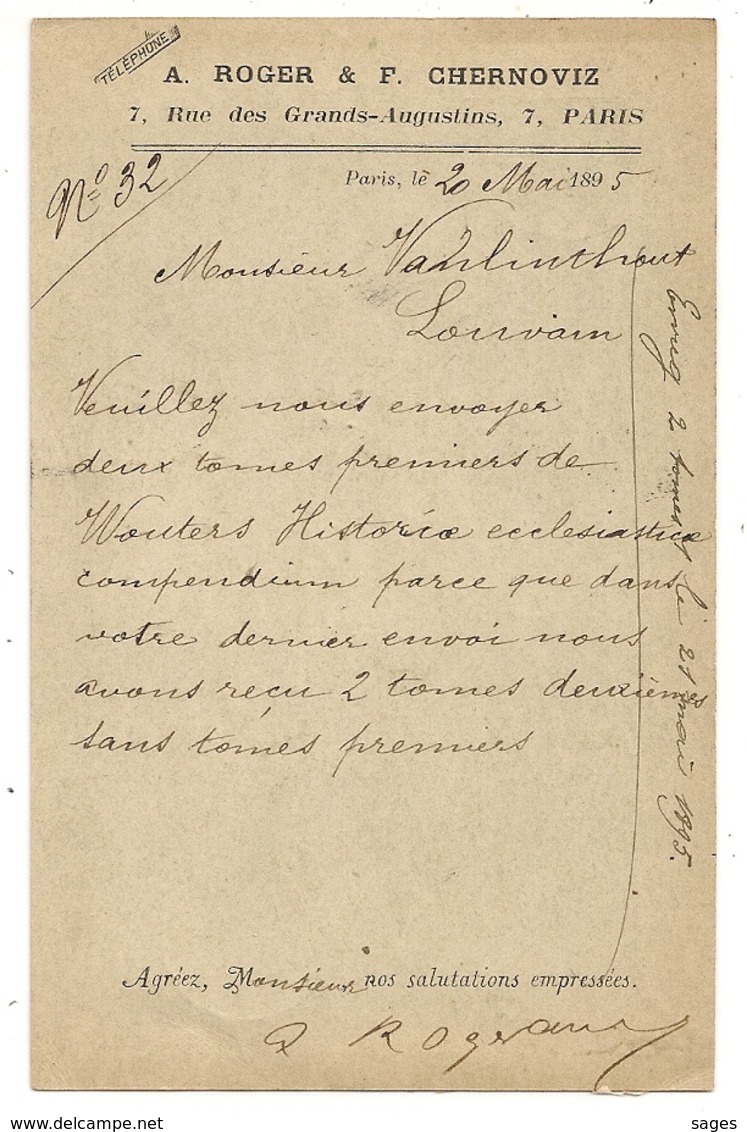 TÉLÉPHONE
A. ROGER & F. CHERNOVIZ
7, Rue des Grands-Augustins, 7, PARIS
Nº 32
Paris, le 20 Mai 1895
Monsieur Vanlinthout
Louvain
Veuillez nous envoyer
deux tomes premiers de
Wouters Historiæ ecclesiasticæ
compendium parce que dans
votre dernier envoi nous
avons reçu 2 tomes deuxièmes
sans tomes premiers
Agréez, Monsieur nos salutations empressées.
A Roger
2 tomes 1 le 21 mai 1895.
sages